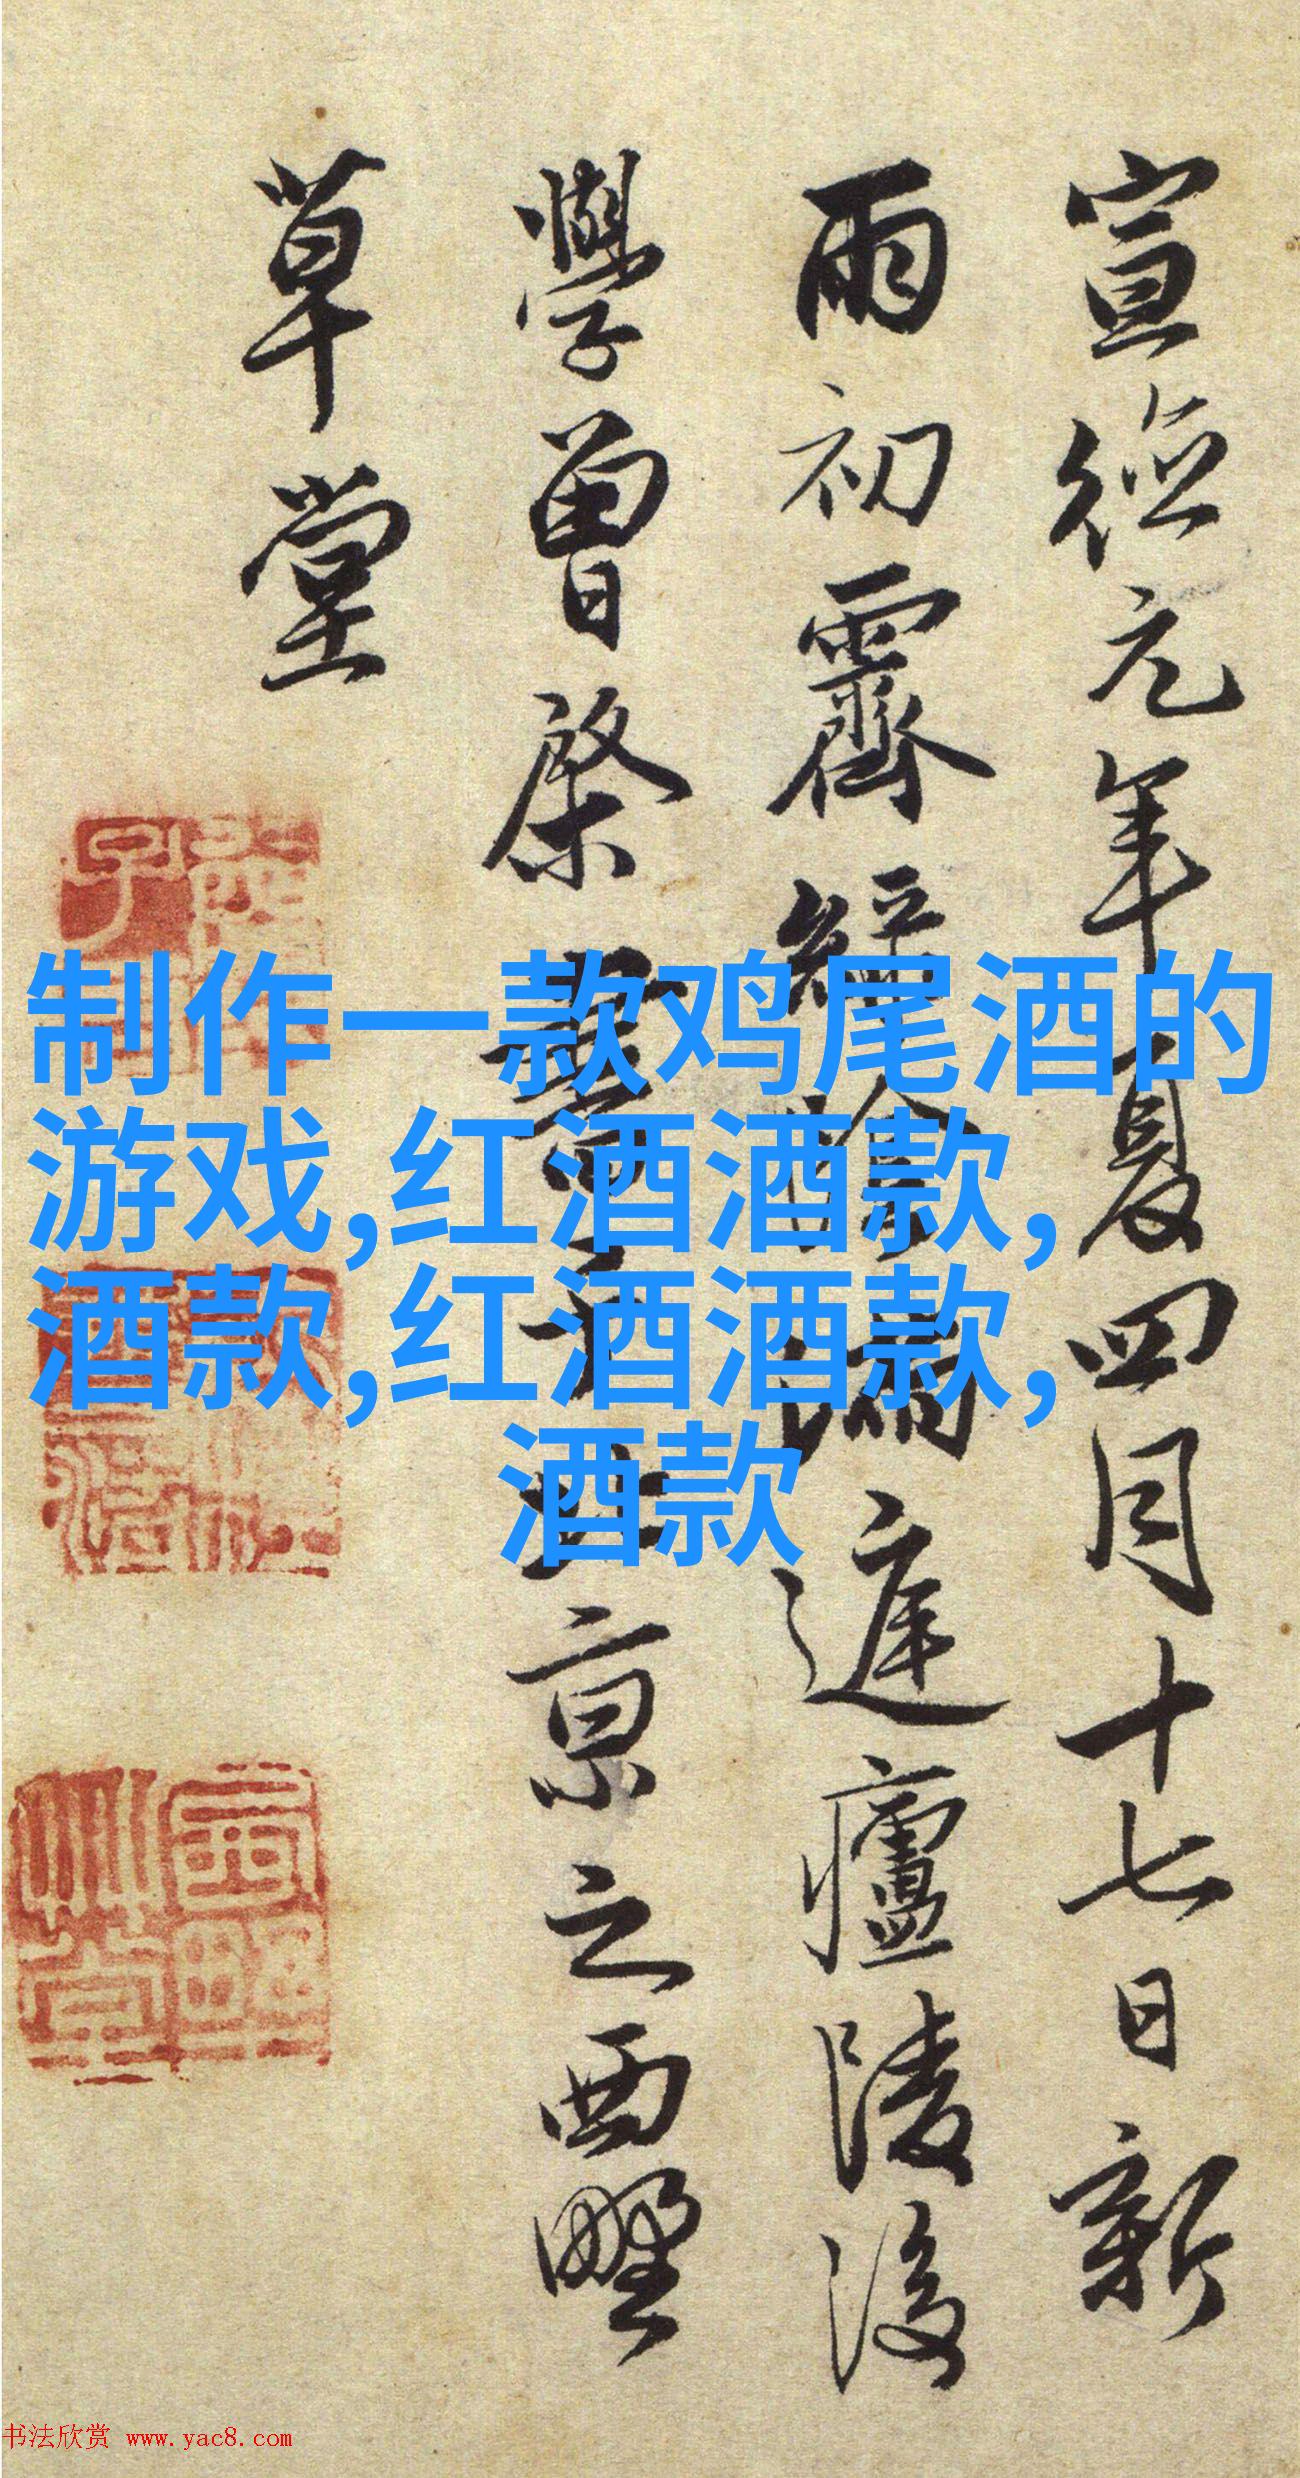 宣德元年夏四月十七日新
雨初霽
遲廬陵後
學曾棨書于北京之西墅
草堂
制作一款鸡尾酒的
游戏,红酒酒款,
酒款,红酒酒款,
酒款
书法欣赏 www.yac8.com